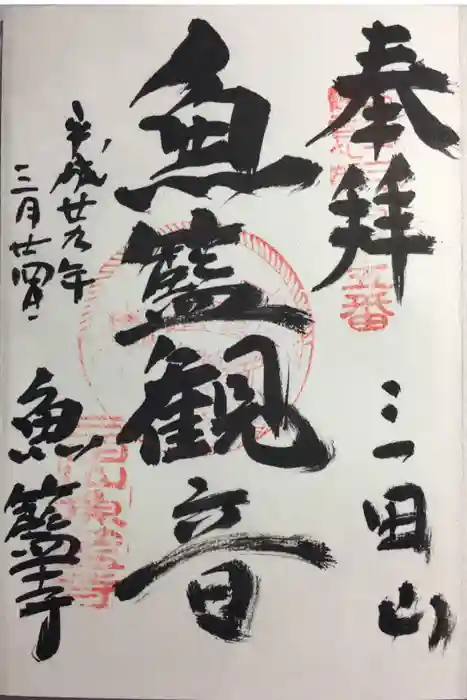 奉拝
三田山
魚籃観音
平成廿九年
三月廿四日
魚籃寺